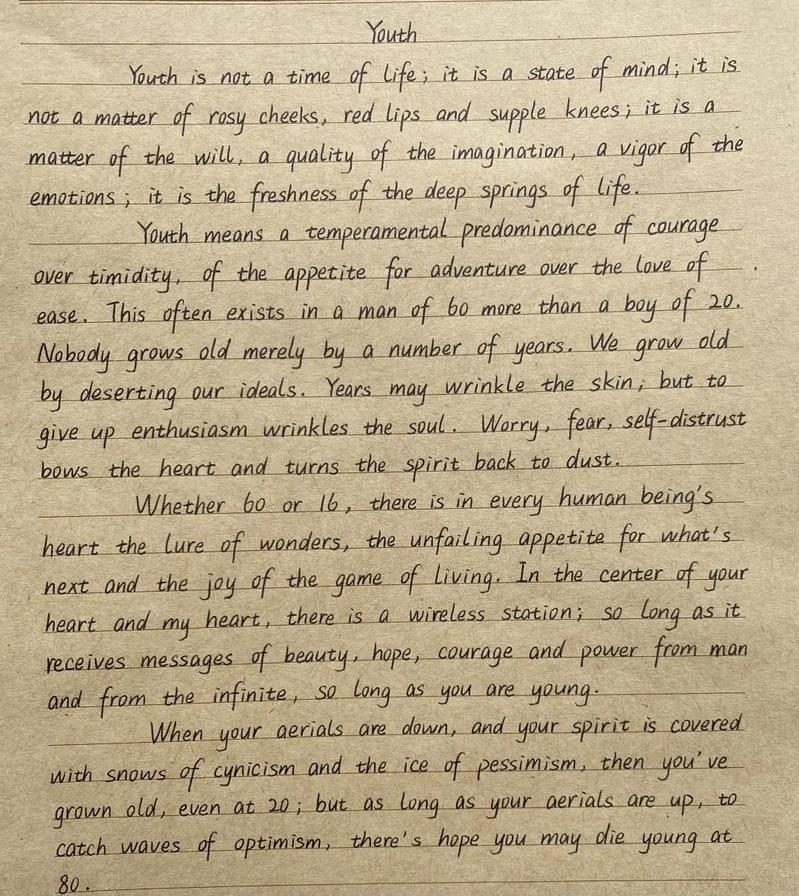 Youth
Youth is not a time of life; it is a state of mind; it is
not a matter of rosy cheeks, red lips and supple knees; it is a
matter of the will, a quality of the imagination, a vigor of the
emotions; it is the freshness of the deep springs of life.
Youth means a temperamental predominance of courage
over timidity, of the appetite for adventure over the love of
ease. This often exists in a man of 60 more than a boy of 20.
Nobody grows old merely by a number of years. We grow old
by deserting our ideals. Years may wrinkle the skin; but to
give up enthusiasm wrinkles the soul. Worry, fear, self-distrust
bows the heart and turns the spirit back to dust.
Whether 60 or 16, there is in every human being's
heart the lure of wonders, the unfailing appetite for what's
next and the joy of the game of living. In the center of your
heart and my heart, there is a wireless station; so long as it
receives messages of beauty, hope, courage and power from man
and from the infinite, so long as you are young.
When your aerials are down, and your spirit is covered
with snows of cynicism and the ice of pessimism, then you've
grown old, even at 20; but as long as your aerials are up, to
catch waves of optimism, there's hope you may die young at
80.